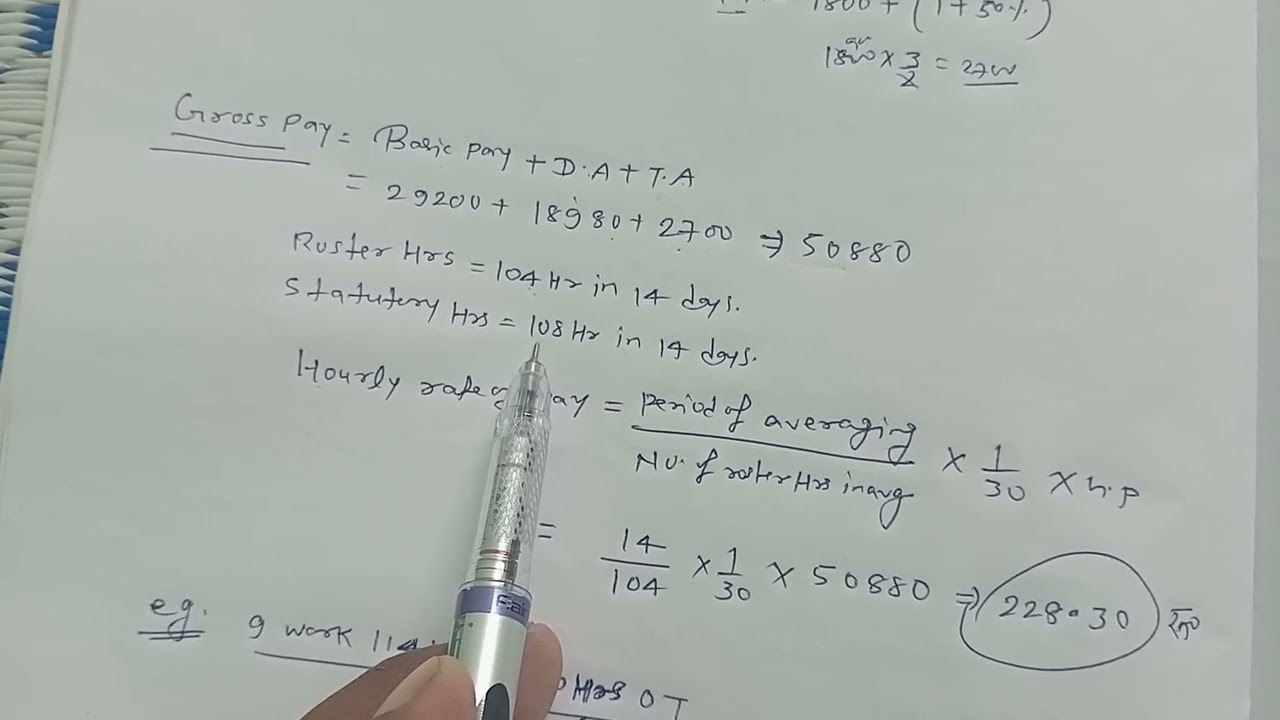 1800 + (1 + 50%)
1800 × 3/2 = 2700
Gross Pay = Basic pay + D.A + T.A
= 29200 + 18980 + 2700 ⇒ 50880
Roster Hrs = 104 Hr in 14 days.
Statutery Hrs = 108 Hr in 14 days.
Hourly rate = Period of averaging / No. of roster Hrs in avg × 1/30 ×
= 14/104 × 1/30 × 50880 ⇒ 228.30
eg. 9 work 114
Hrs OT